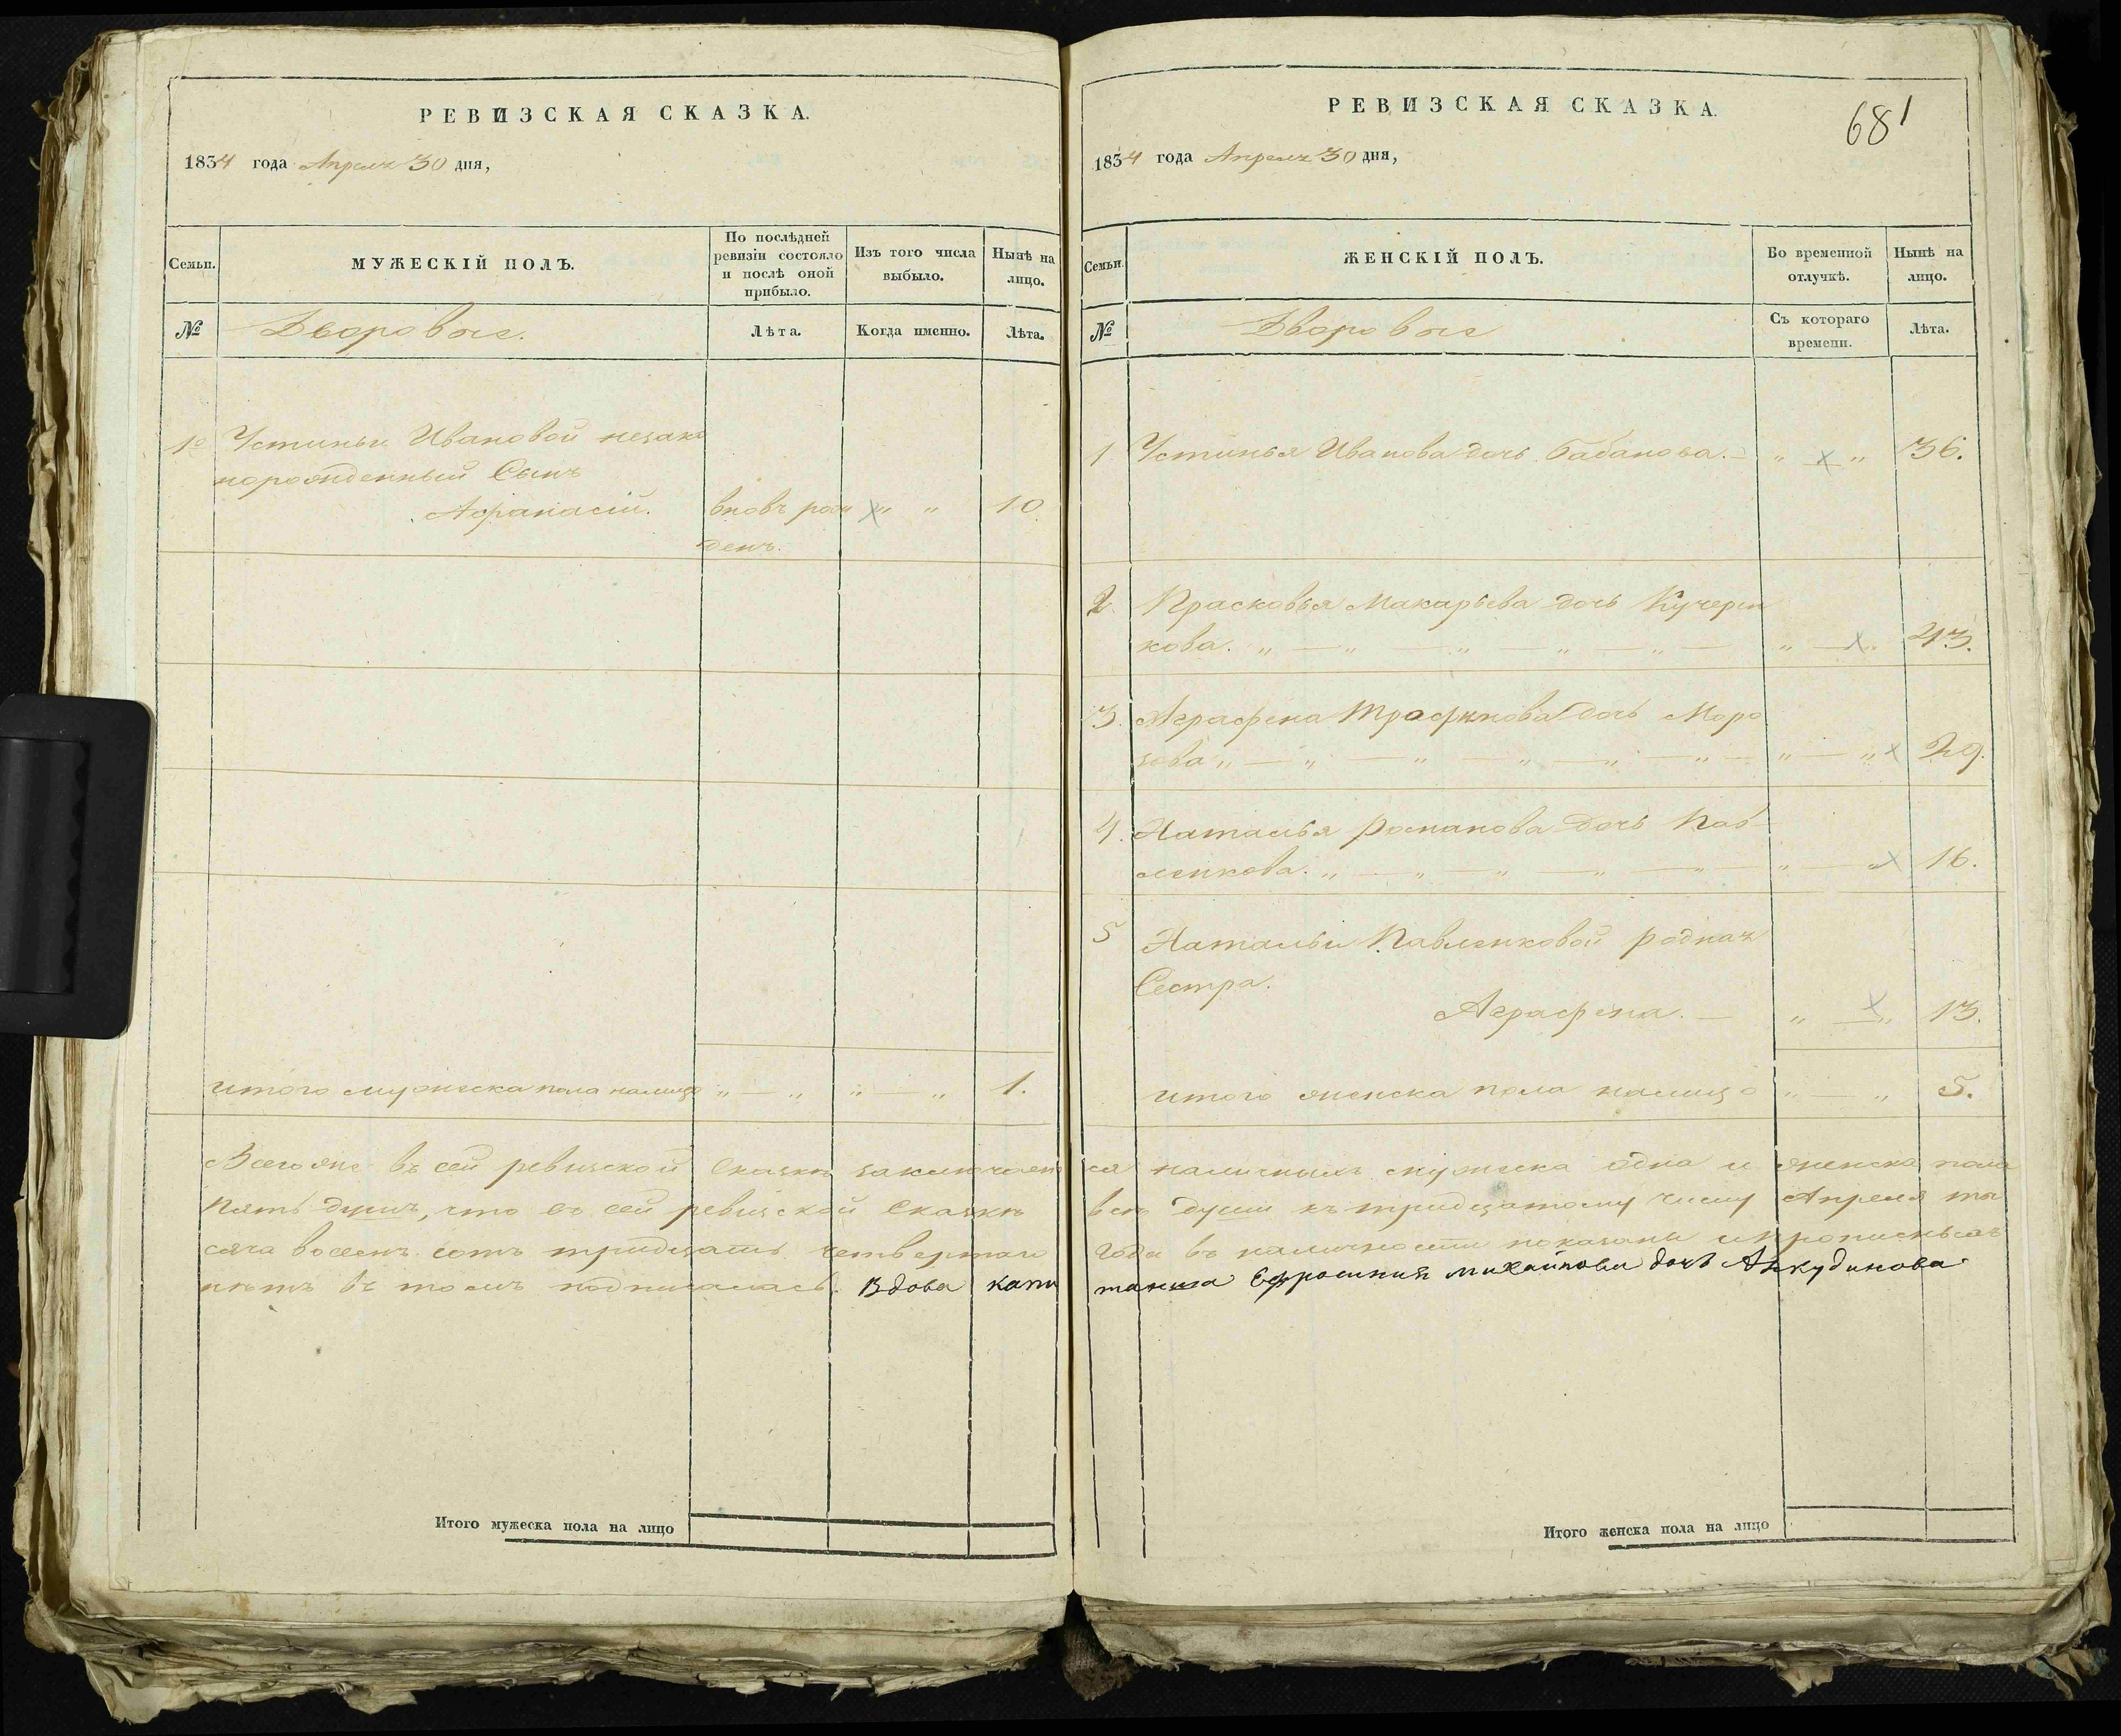 РЕВИЗСКАЯ СКАЗКА.
1834 года Апреля 30 дня,
Семьи.
МУЖЕСКІЙ ПОЛЪ.
По послѣдней
ревизіи состояло
и послѣ оной
прибыло.
Изъ того числа
выбыло.
Нынѣ на
лицо.
№
Дворовые.
Лѣта.
Когда именно.
Лѣта.
1й Устиньи Ивановой незако
норожденный Сынъ
Афанасій. вновь рож „ „ 10
денъ.
итого мужеска пола налицо „ — „ „ — „ 1.
РЕВИЗСКАЯ СКАЗКА.
681
1834 года Апреля 30 дня,
Семьи.
ЖЕНСКІЙ ПОЛЪ.
Во временной
отлучкѣ.
Нынѣ на
лицо.
№
Дворовые
Съ котораго
времени.
Лѣта.
1 Устинья Иванова дочь Бабанова. — „ — „ 36.
2. Прасковья Макарьева дочь Кучерен
кова. „ — „ — „ — „ — „ — „ — „ 43.
3. Аграфена Трофимова дочь Моро
зова „ — „ — „ — „ — „ — „ — „ — „ 29.
4. Наталья Романова дочь Пав-
ленкова. „ — „ — „ — „ — „ — „ — „ 16.
5 Натальи Павленковой родная
Сестра.
Аграфена. — „ — „ 13.
итого женска пола налицо „ — „ 5.
Всего же въ сей ревизской Сказкѣ заключает ся наличныхъ мужеска одна и женска пола
пять душъ, что въ сей ревизской Сказкѣ всѣ души къ тридцатому числу Апреля ты
сяча восемь сотъ тридцать четвертаго Года въ наличности показаны и прописныхъ
нѣтъ въ томъ подписалась. Вдова капи танша Ефросиния михайлова дочь Анкудинова
Итого мужеска пола на лицо
Итого женска пола на лицо